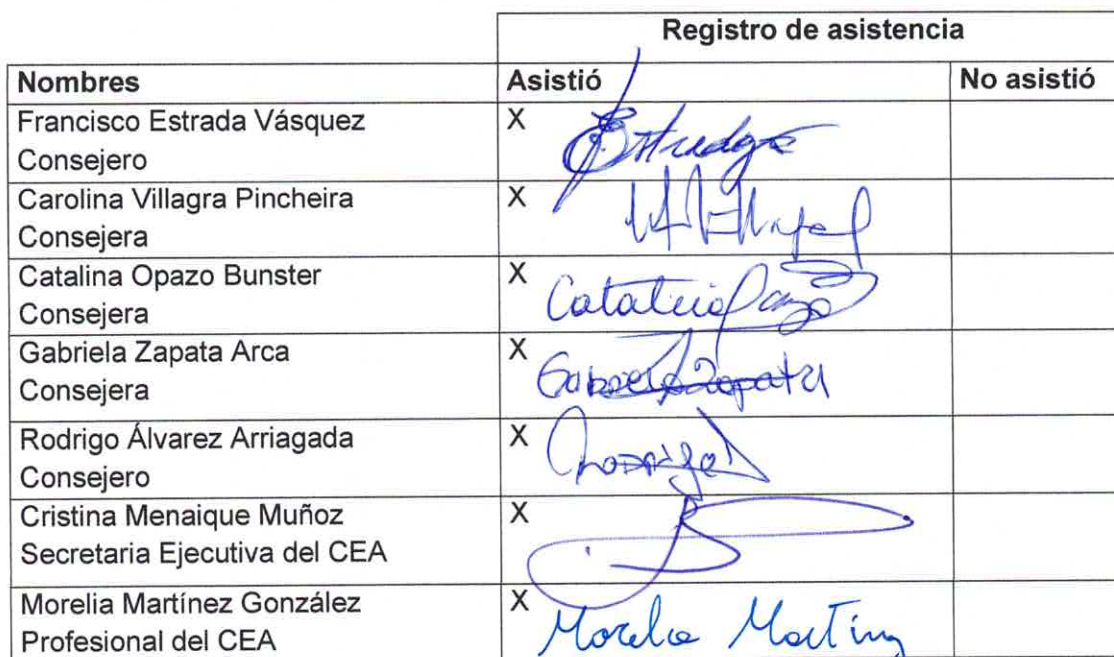 Registro de asistencia
Nombres Asistió No asistió
Francisco Estrada Vásquez X
Consejero
Carolina Villagra Pincheira X
Consejera
Catalina Opazo Bunster X
Consejera
Gabriela Zapata Arca X
Consejera Gabriela Zapata
Rodrigo Álvarez Arriagada X
Consejero Rodrigo
Cristina Menaique Muñoz X
Secretaria Ejecutiva del CEA
Morelia Martínez González X
Profesional del CEA Morelia Martínez